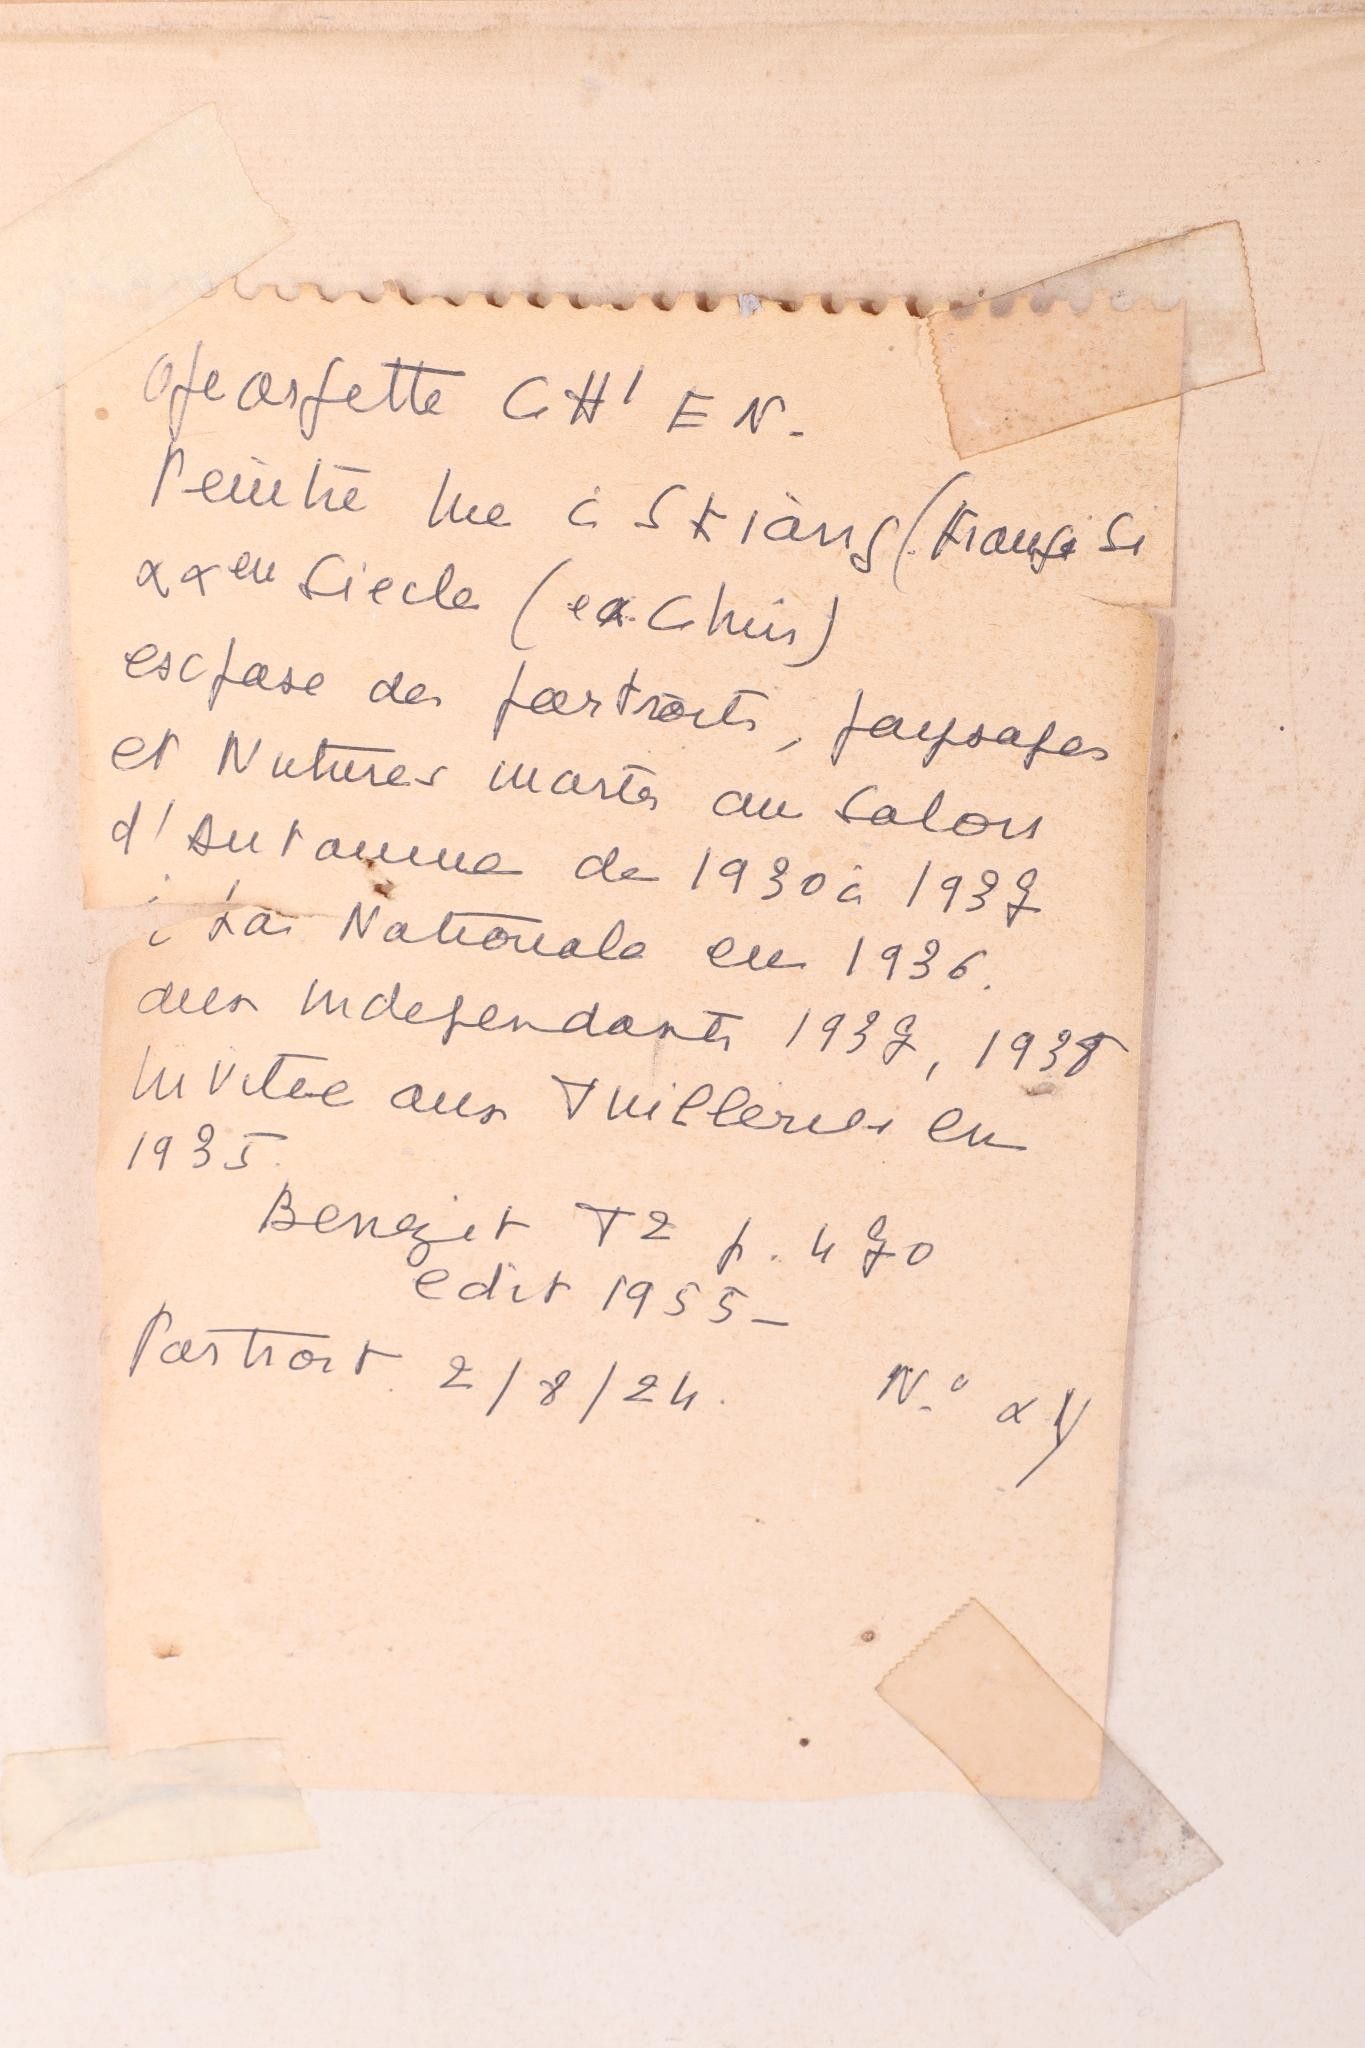 Georgette CH'EN.
Peintre née à S Kiang (Française
XXem Siecle (ex. Chin)
expose des portraits, paysages
et Natures mortes au Salon
d'Automne de 1930 à 1937
à La Nationale en 1936.
aux independants 1937, 1938
invitee aux Tuilleries en
1935.
Benezit T2 p. 470
edit 1955-
Portrait 2/8/24. N.°